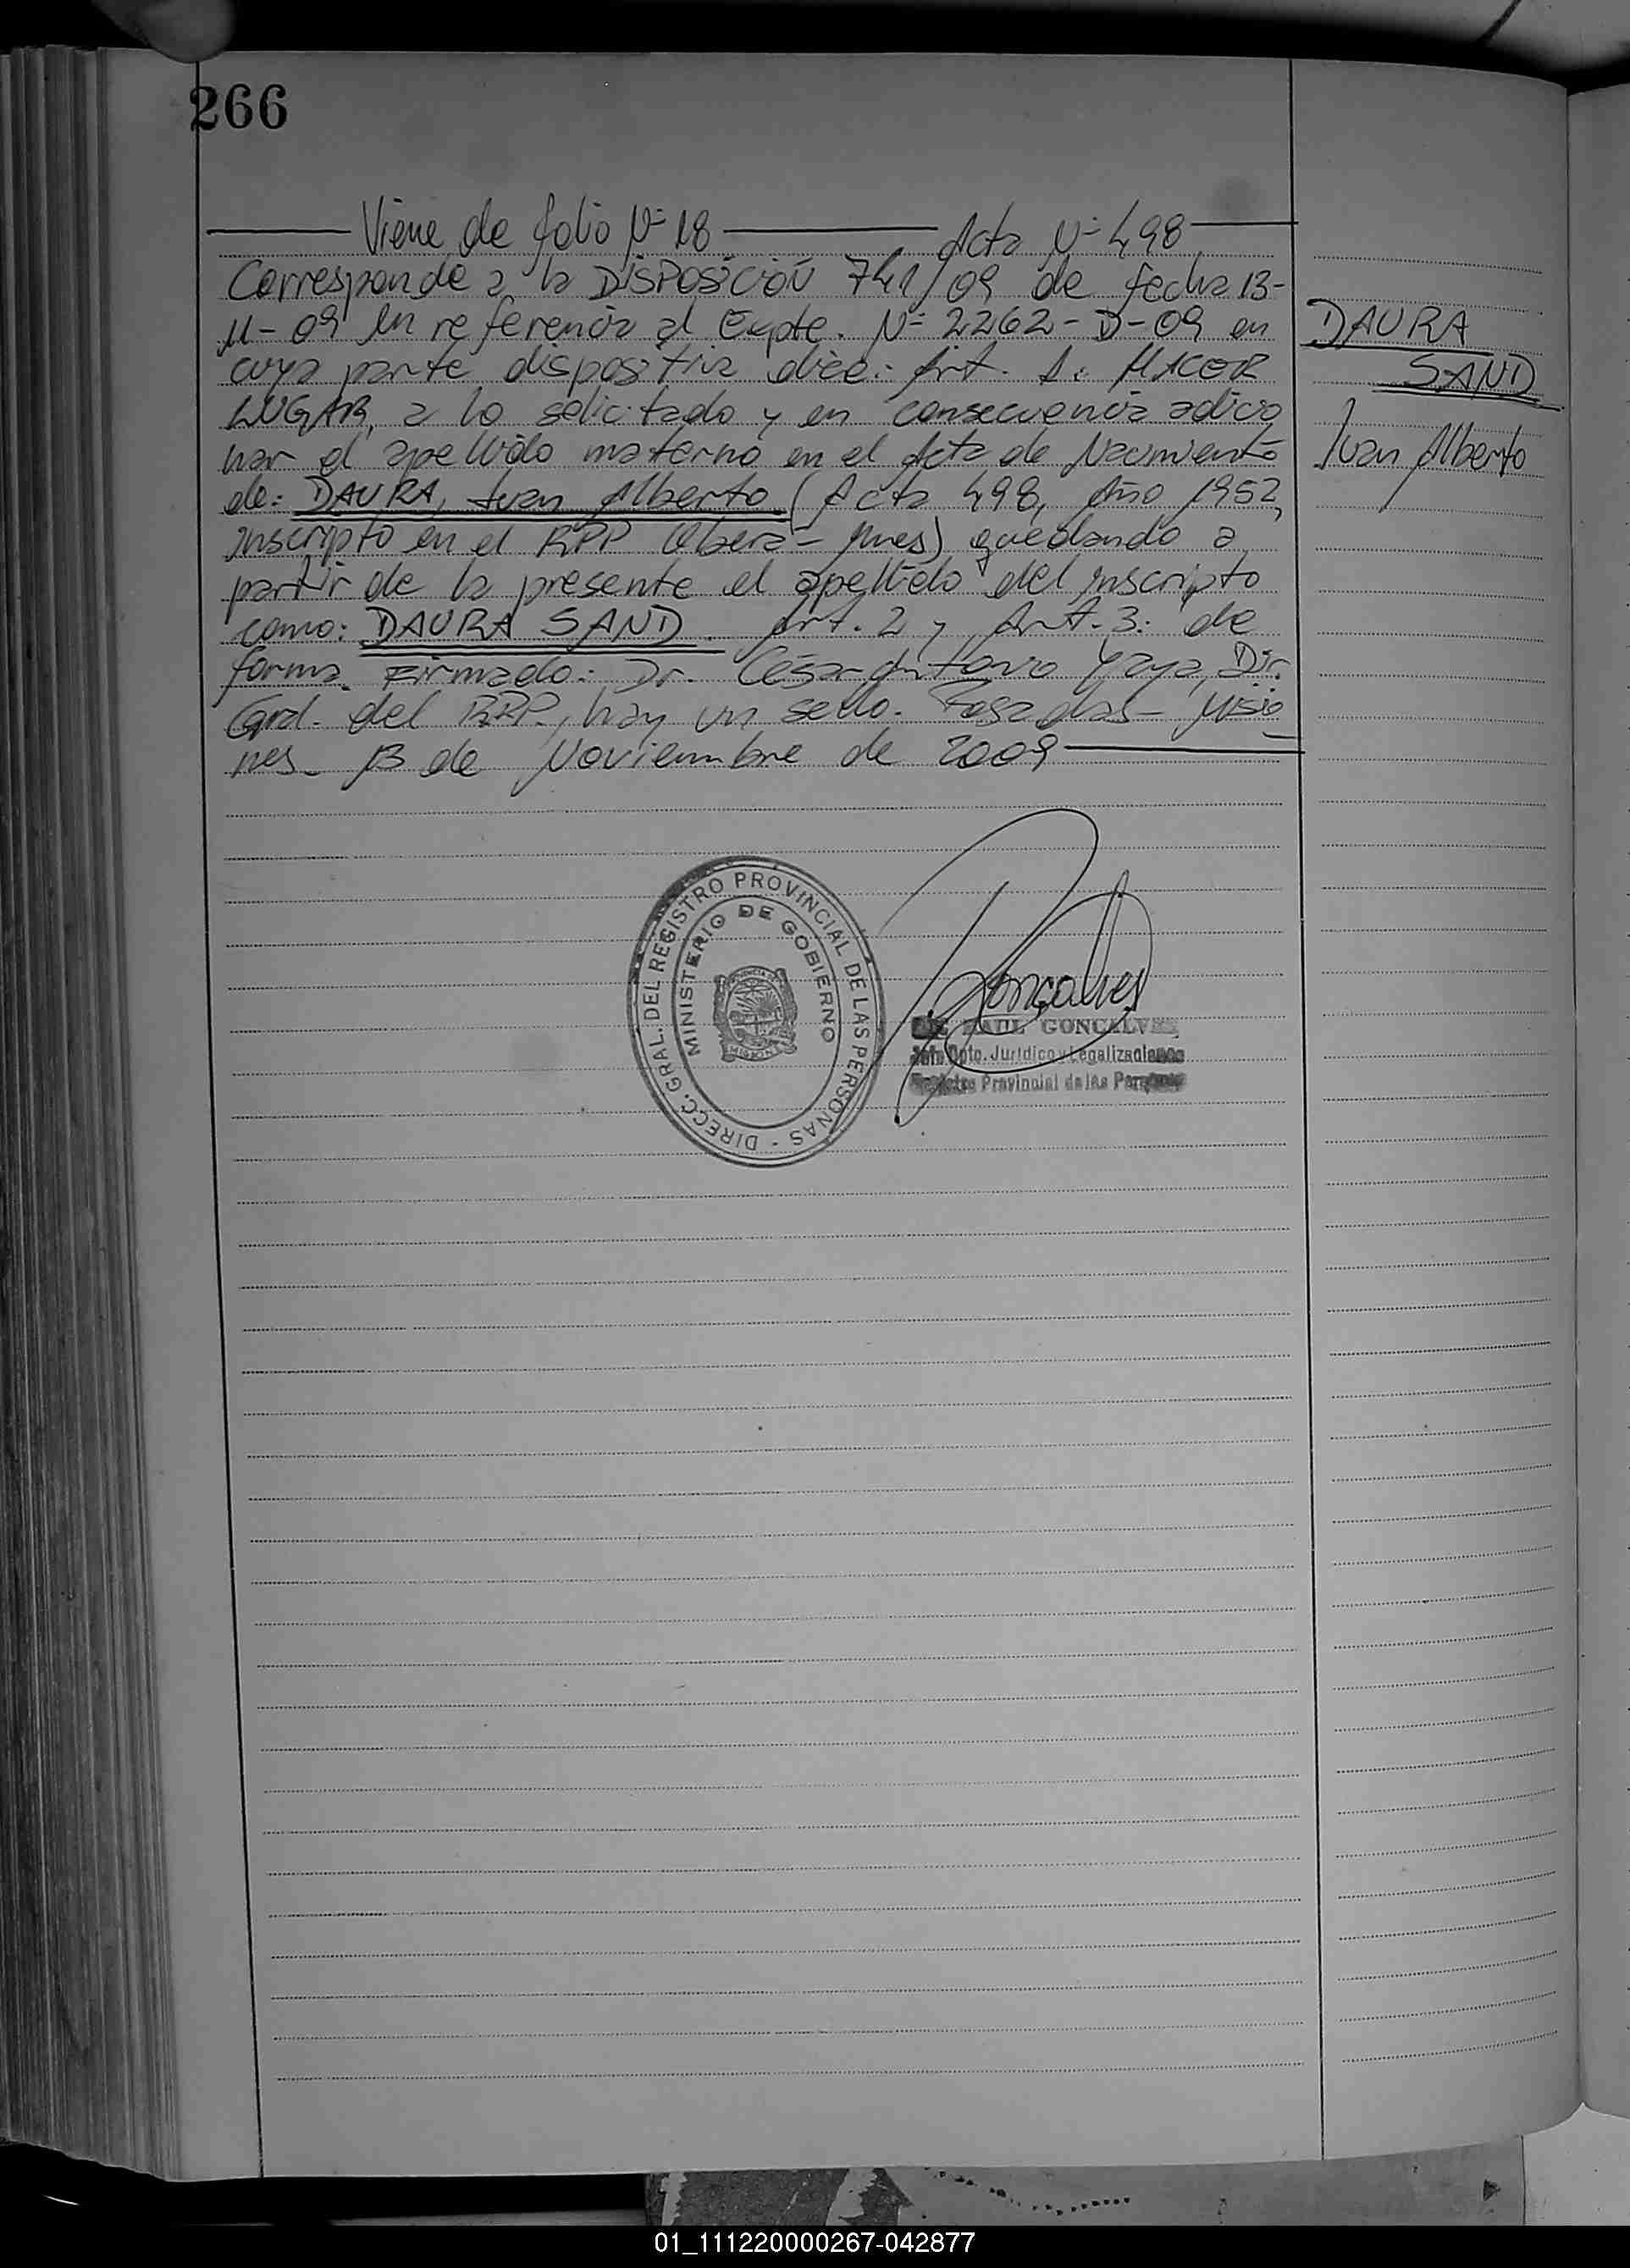 266
Viene de folio Nº 18 Acta Nº 498
Corresponde a la DISPOSICIÓN 741/09 de fecha 13-
11-09 en referencia al Expte. Nº 2262-D-09 en
cuya parte dispositiva dice: Art. 1: HACER
LUGAR, a lo solicitado y en consecuencia adicio
nar el apellido materno en el Acta de Nacimiento
de: DAURA, Juan Alberto (Acta 498, Año 1952,
inscripto en el RPP Oberá - Mnes) quedando a
partir de la presente el apellido del inscripto
como: DAURA SAND. Art. 2 y Art. 3: de
forma. Firmado: Dr. César Antonio Yaya, Dir.
Gral. del RPP., hay un sello. Posadas - Misio
nes - 13 de Noviembre de 2009
DAURA
SAND
Juan Alberto
DIRECC. GRAL. DEL REGISTRO PROVINCIAL DE LAS PERSONAS -
MINISTERIO DE GOBIERNO
Gonçalves
RAUL GONÇALVES
Jefe Dpto. Jurídico y Legalizaciones
Registro Provincial de las Personas
01_111220000267-042877